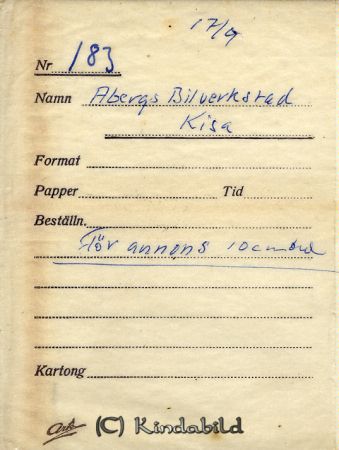 17/9
Nr 183
Namn Åbergs Bilverkstad
Kisa
Format
Papper Tid
Beställn.
För annons 10 cm bred
Kartong
Ark (C) Kindabild